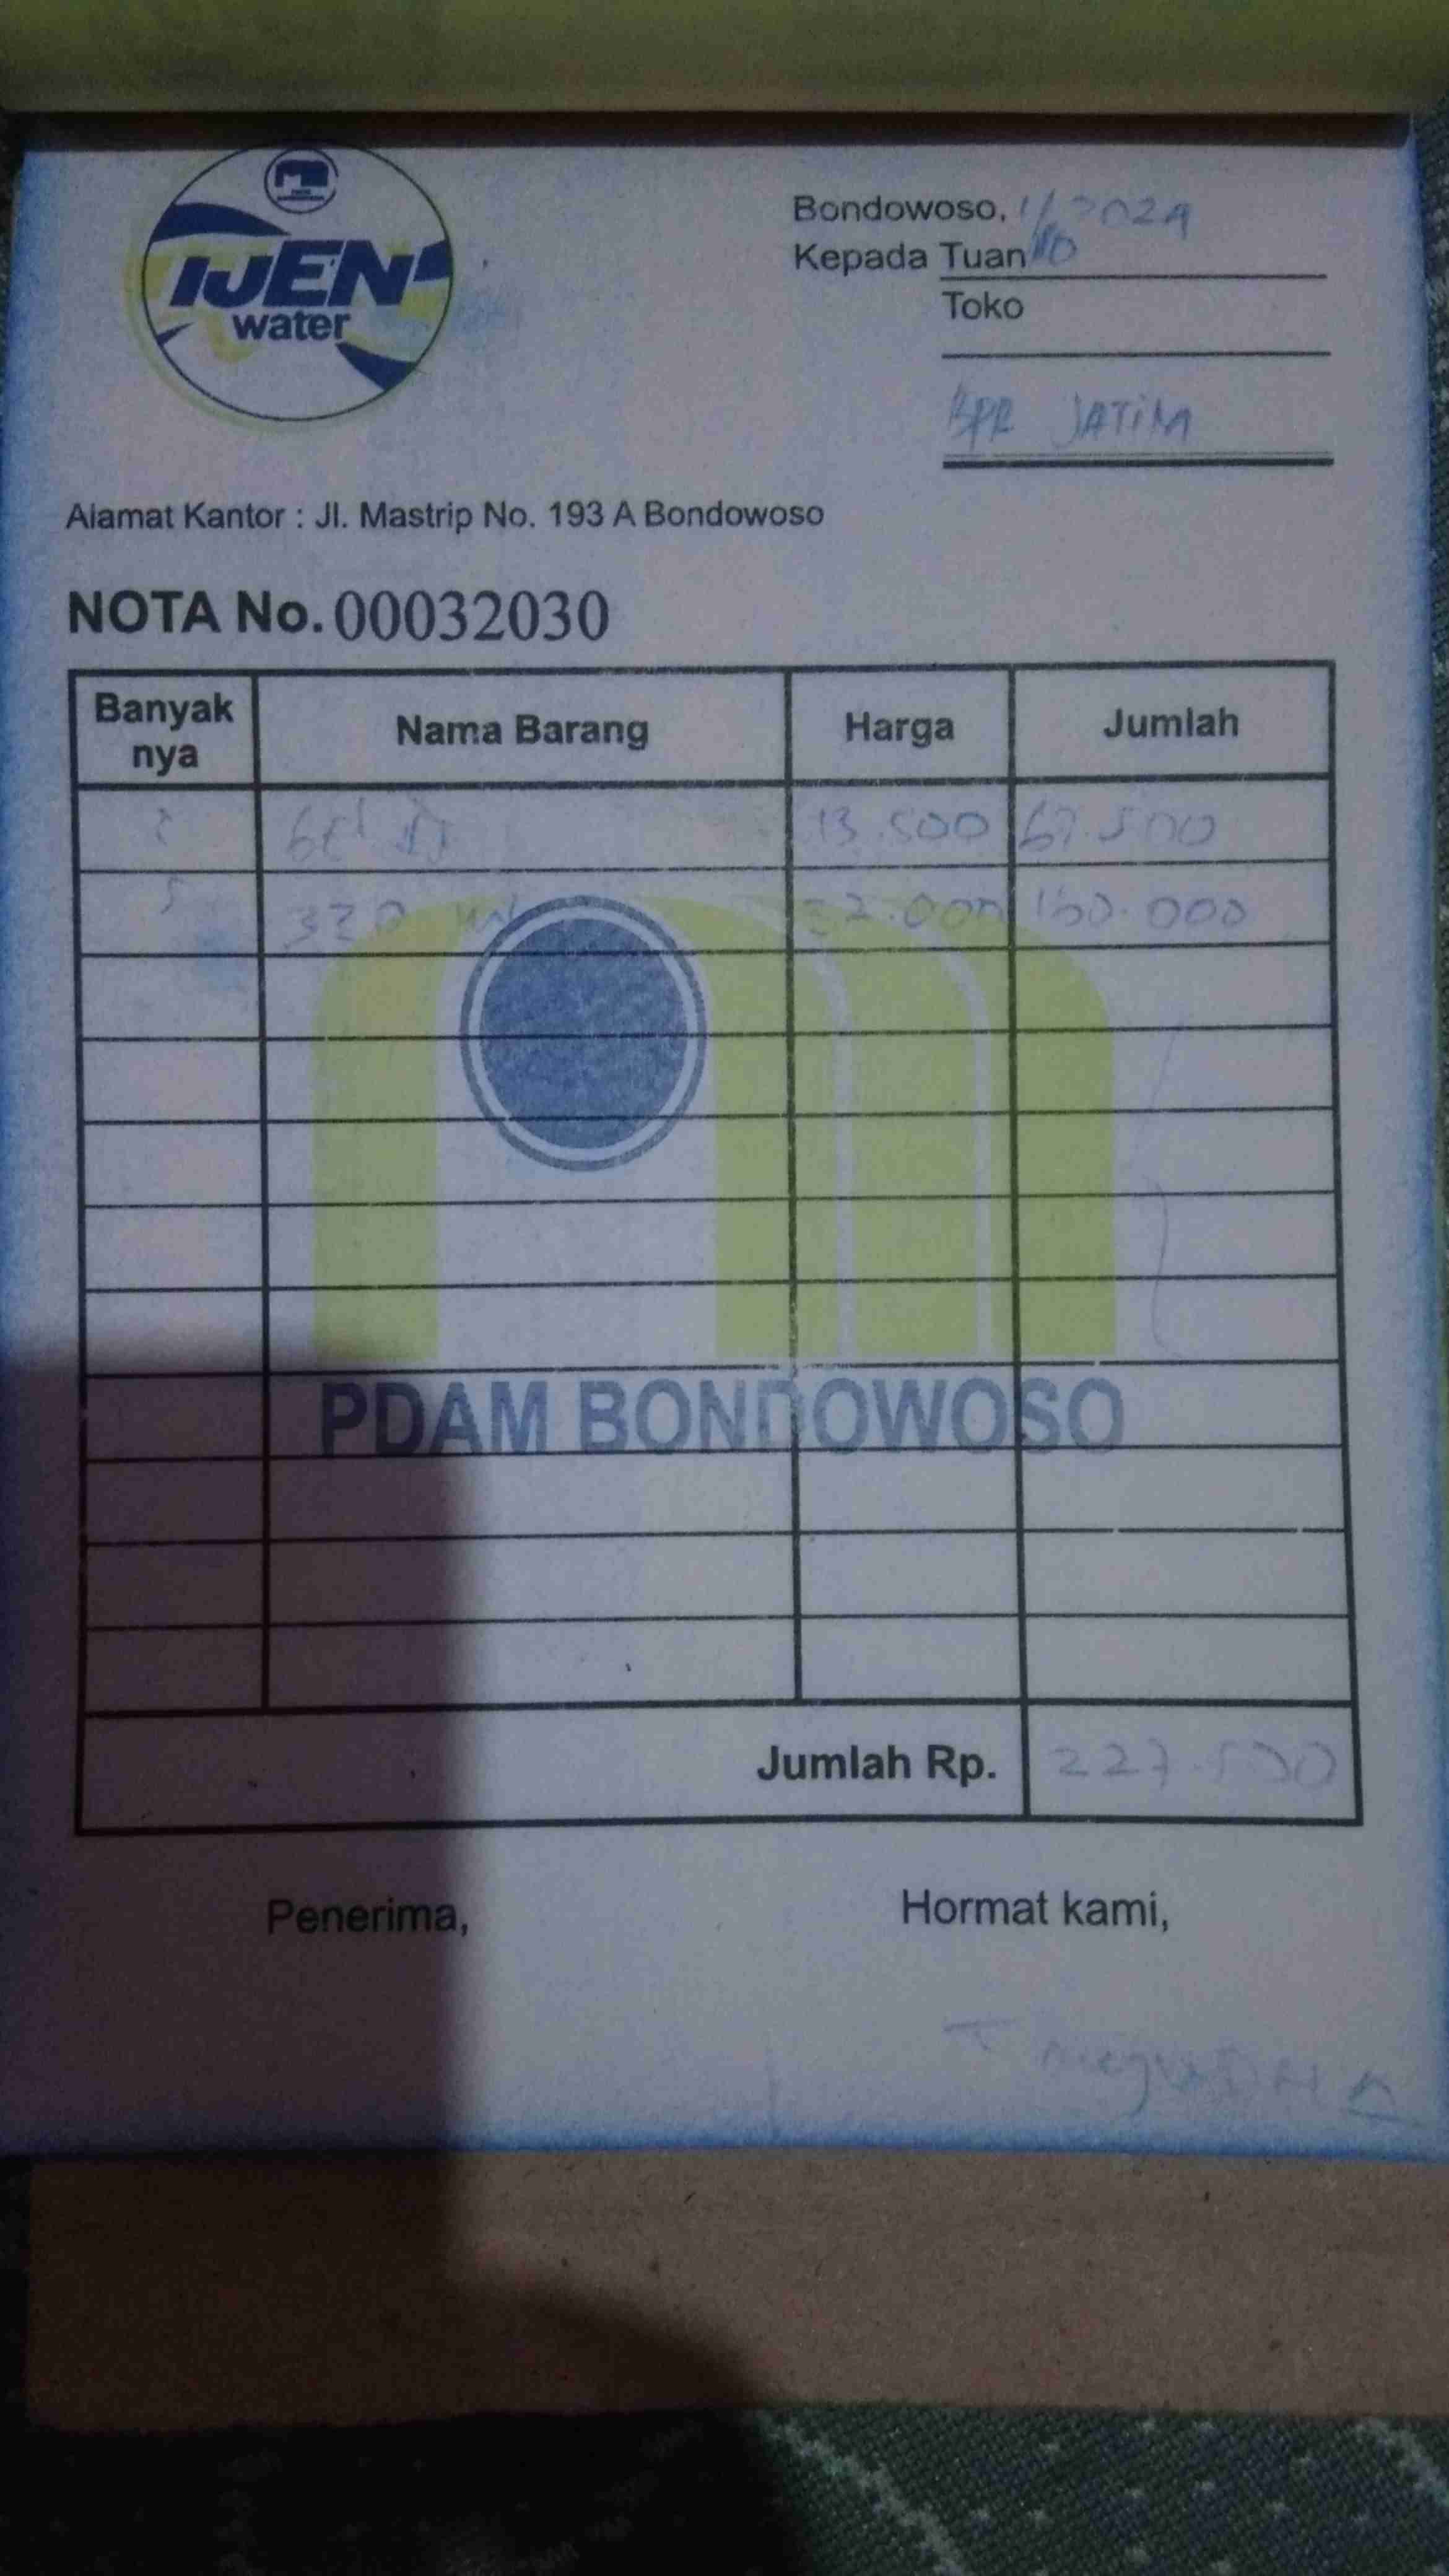 IJEN
water
Bondowoso, 1/10 2024
Kepada Tuan
Toko
BPR JATIM
Alamat Kantor : Jl. Mastrip No. 193 A Bondowoso
NOTA No. 00032030
Banyak nya Nama Barang Harga Jumlah
13.500 67.500
5 330 32.000 160.000
PDAM BONDOWOSO
Jumlah Rp. 227.500
Penerima, Hormat kami,